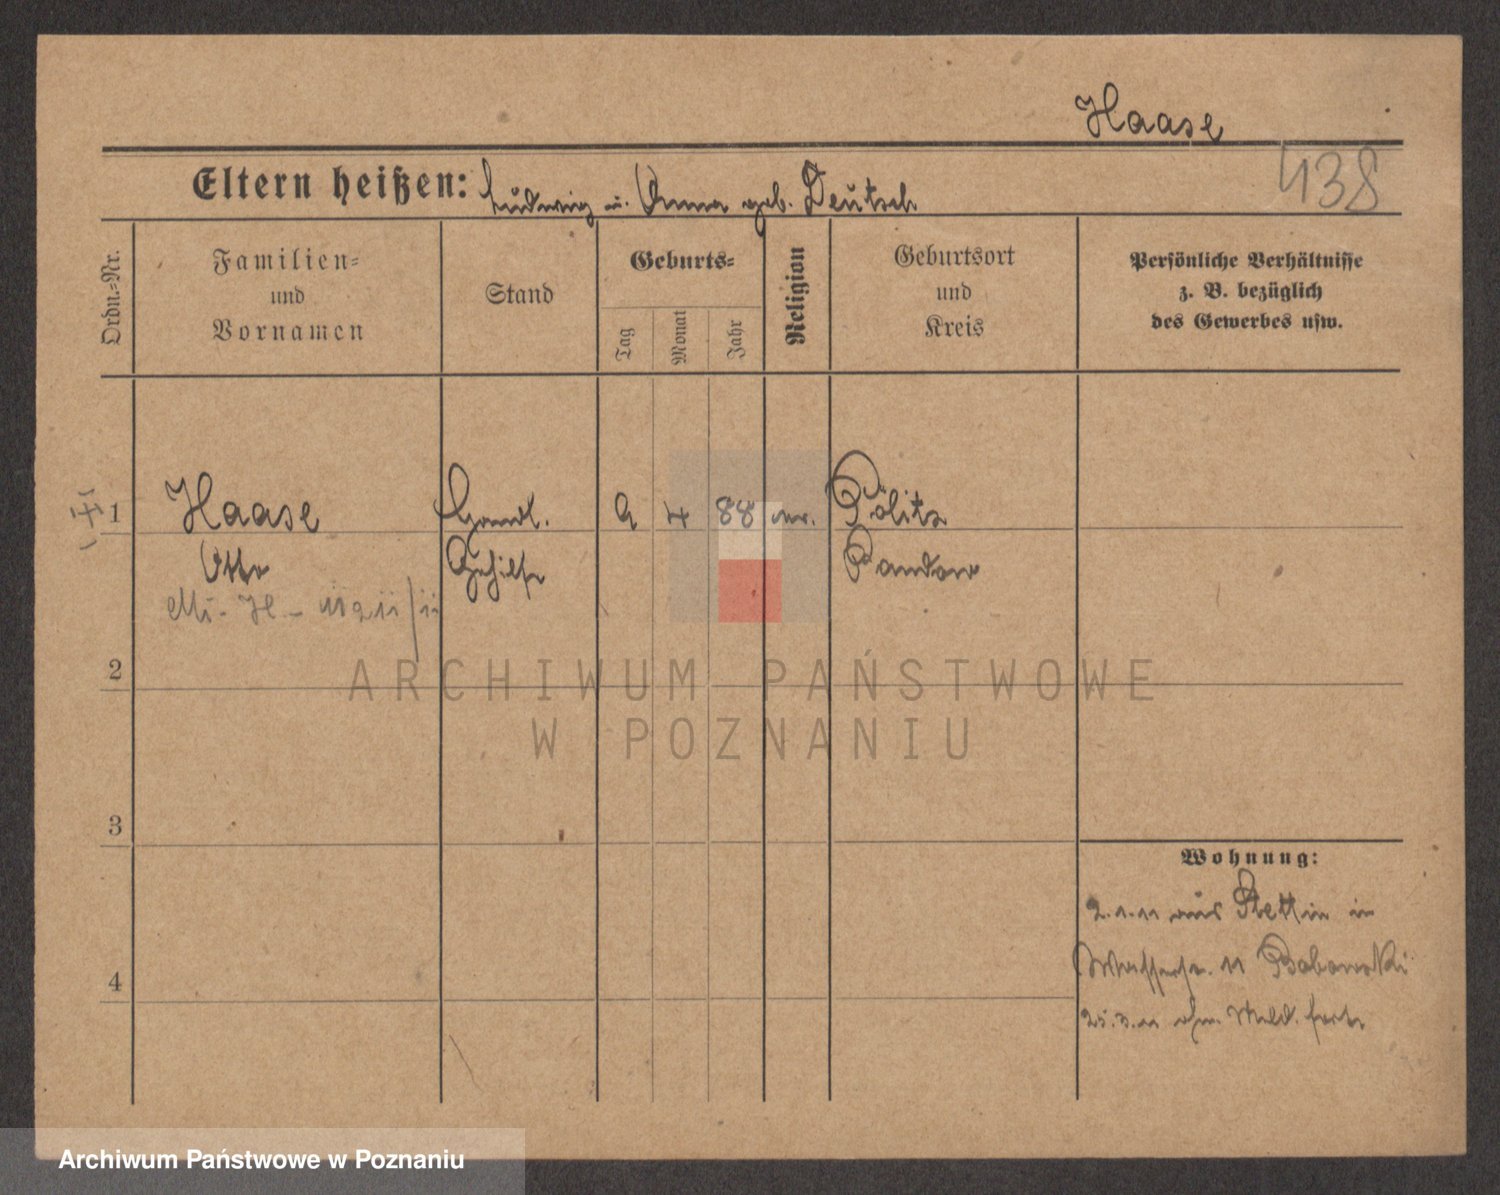 Haase
438
Eltern heißen: Ludwig u. Anna geb. Deutsch
Ordn.-Nr.
Familien-
und
Vornamen
Stand
Geburts-
Tag
Monat
Jahr
Religion
Geburtsort
und
Kreis
Persönliche Verhältnisse
z. B. bezüglich
des Gewerbes usw.
1 Haase Handl. 9 4 88 ev. Pölitz
Otto Gehilfe Randow
Mi - H -
2
ARCHIWUM PAŃSTWOWE
W POZNANIU
3
Wohnung:
2.1.11 aus Stettin in
Wasserstr. 11
4
25.3.11 ohne Meld. fort
Archiwum Państwowe w Poznaniu